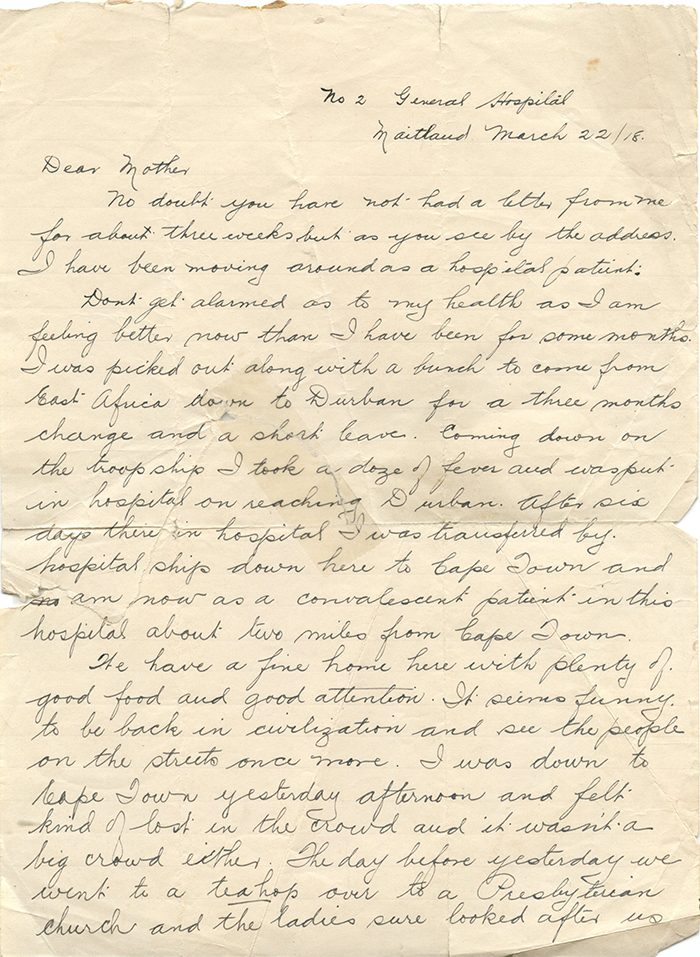 No 2 General Hospital
Maitland March 22/18.
Dear Mother
No doubt you have not had a letter from me
for about three weeks but as you see by the address.
I have been moving around as a hospital patient.
Dont get alarmed as to my health as I am
feeling better now than I have been for some months.
I was picked out along with a bunch to come from
East Africa down to Durban for a three months
change and a short leave. Coming down on
the troop ship I took a doze of fever and was put
in hospital on reaching Durban. After six
days there in hospital I was transferred by.
hospital ship down here to Cape Town and
am now as a convalescent patient in this
hospital about two miles from Cape Town.
We have a fine home here with plenty of.
good food and good attention. It seems funny.
to be back in civilization and see the people
on the streets once more. I was down to
Cape Town yesterday afternoon and felt
kind of lost in the crowd and it wasn't a
big crowd either. The day before yesterday we
went to a tea hop over to a Presbyterian
church and the ladies sure looked after us